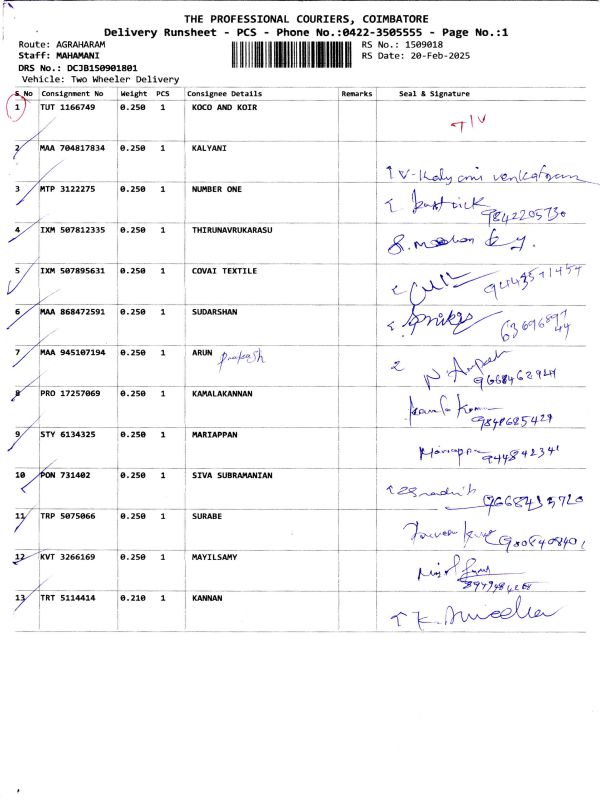 THE PROFESSIONAL COURIERS, COIMBATORE
Delivery Runsheet - PCS - Phone No.:0422-3505555 - Page No.:1
Route: AGRAHARAM RS No.: 1509018
Staff: MAHAMANI RS Date: 20-Feb-2025
DRS No.: DCJB150901801
Vehicle: Two Wheeler Delivery
S No Consignment No Weight PCS Consignee Details Remarks Seal & Signature
1 TUT 1166749 0.250 1 KOCO AND KOIR
2 MAA 704817834 0.250 1 KALYANI
V-Kalyani venkatram
3 MTP 3122275 0.250 1 NUMBER ONE
9842205730
4 IXM 507812335 0.250 1 THIRUNAVRUKARASU
5 IXM 507895631 0.250 1 COVAI TEXTILE
6 MAA 868472591 0.250 1 SUDARSHAN
7 MAA 945107194 0.250 1 ARUN Prakash
8 PRO 17257069 0.250 1 KAMALAKANNAN
9848685429
9 STY 6134325 0.250 1 MARIAPPAN
Mariappn
10 PON 731402 0.250 1 SIVA SUBRAMANIAN
11 TRP 5075066 0.250 1 SURABE
12 KVT 3266169 0.250 1 MAYILSAMY
13 TRT 5114414 0.210 1 KANNAN